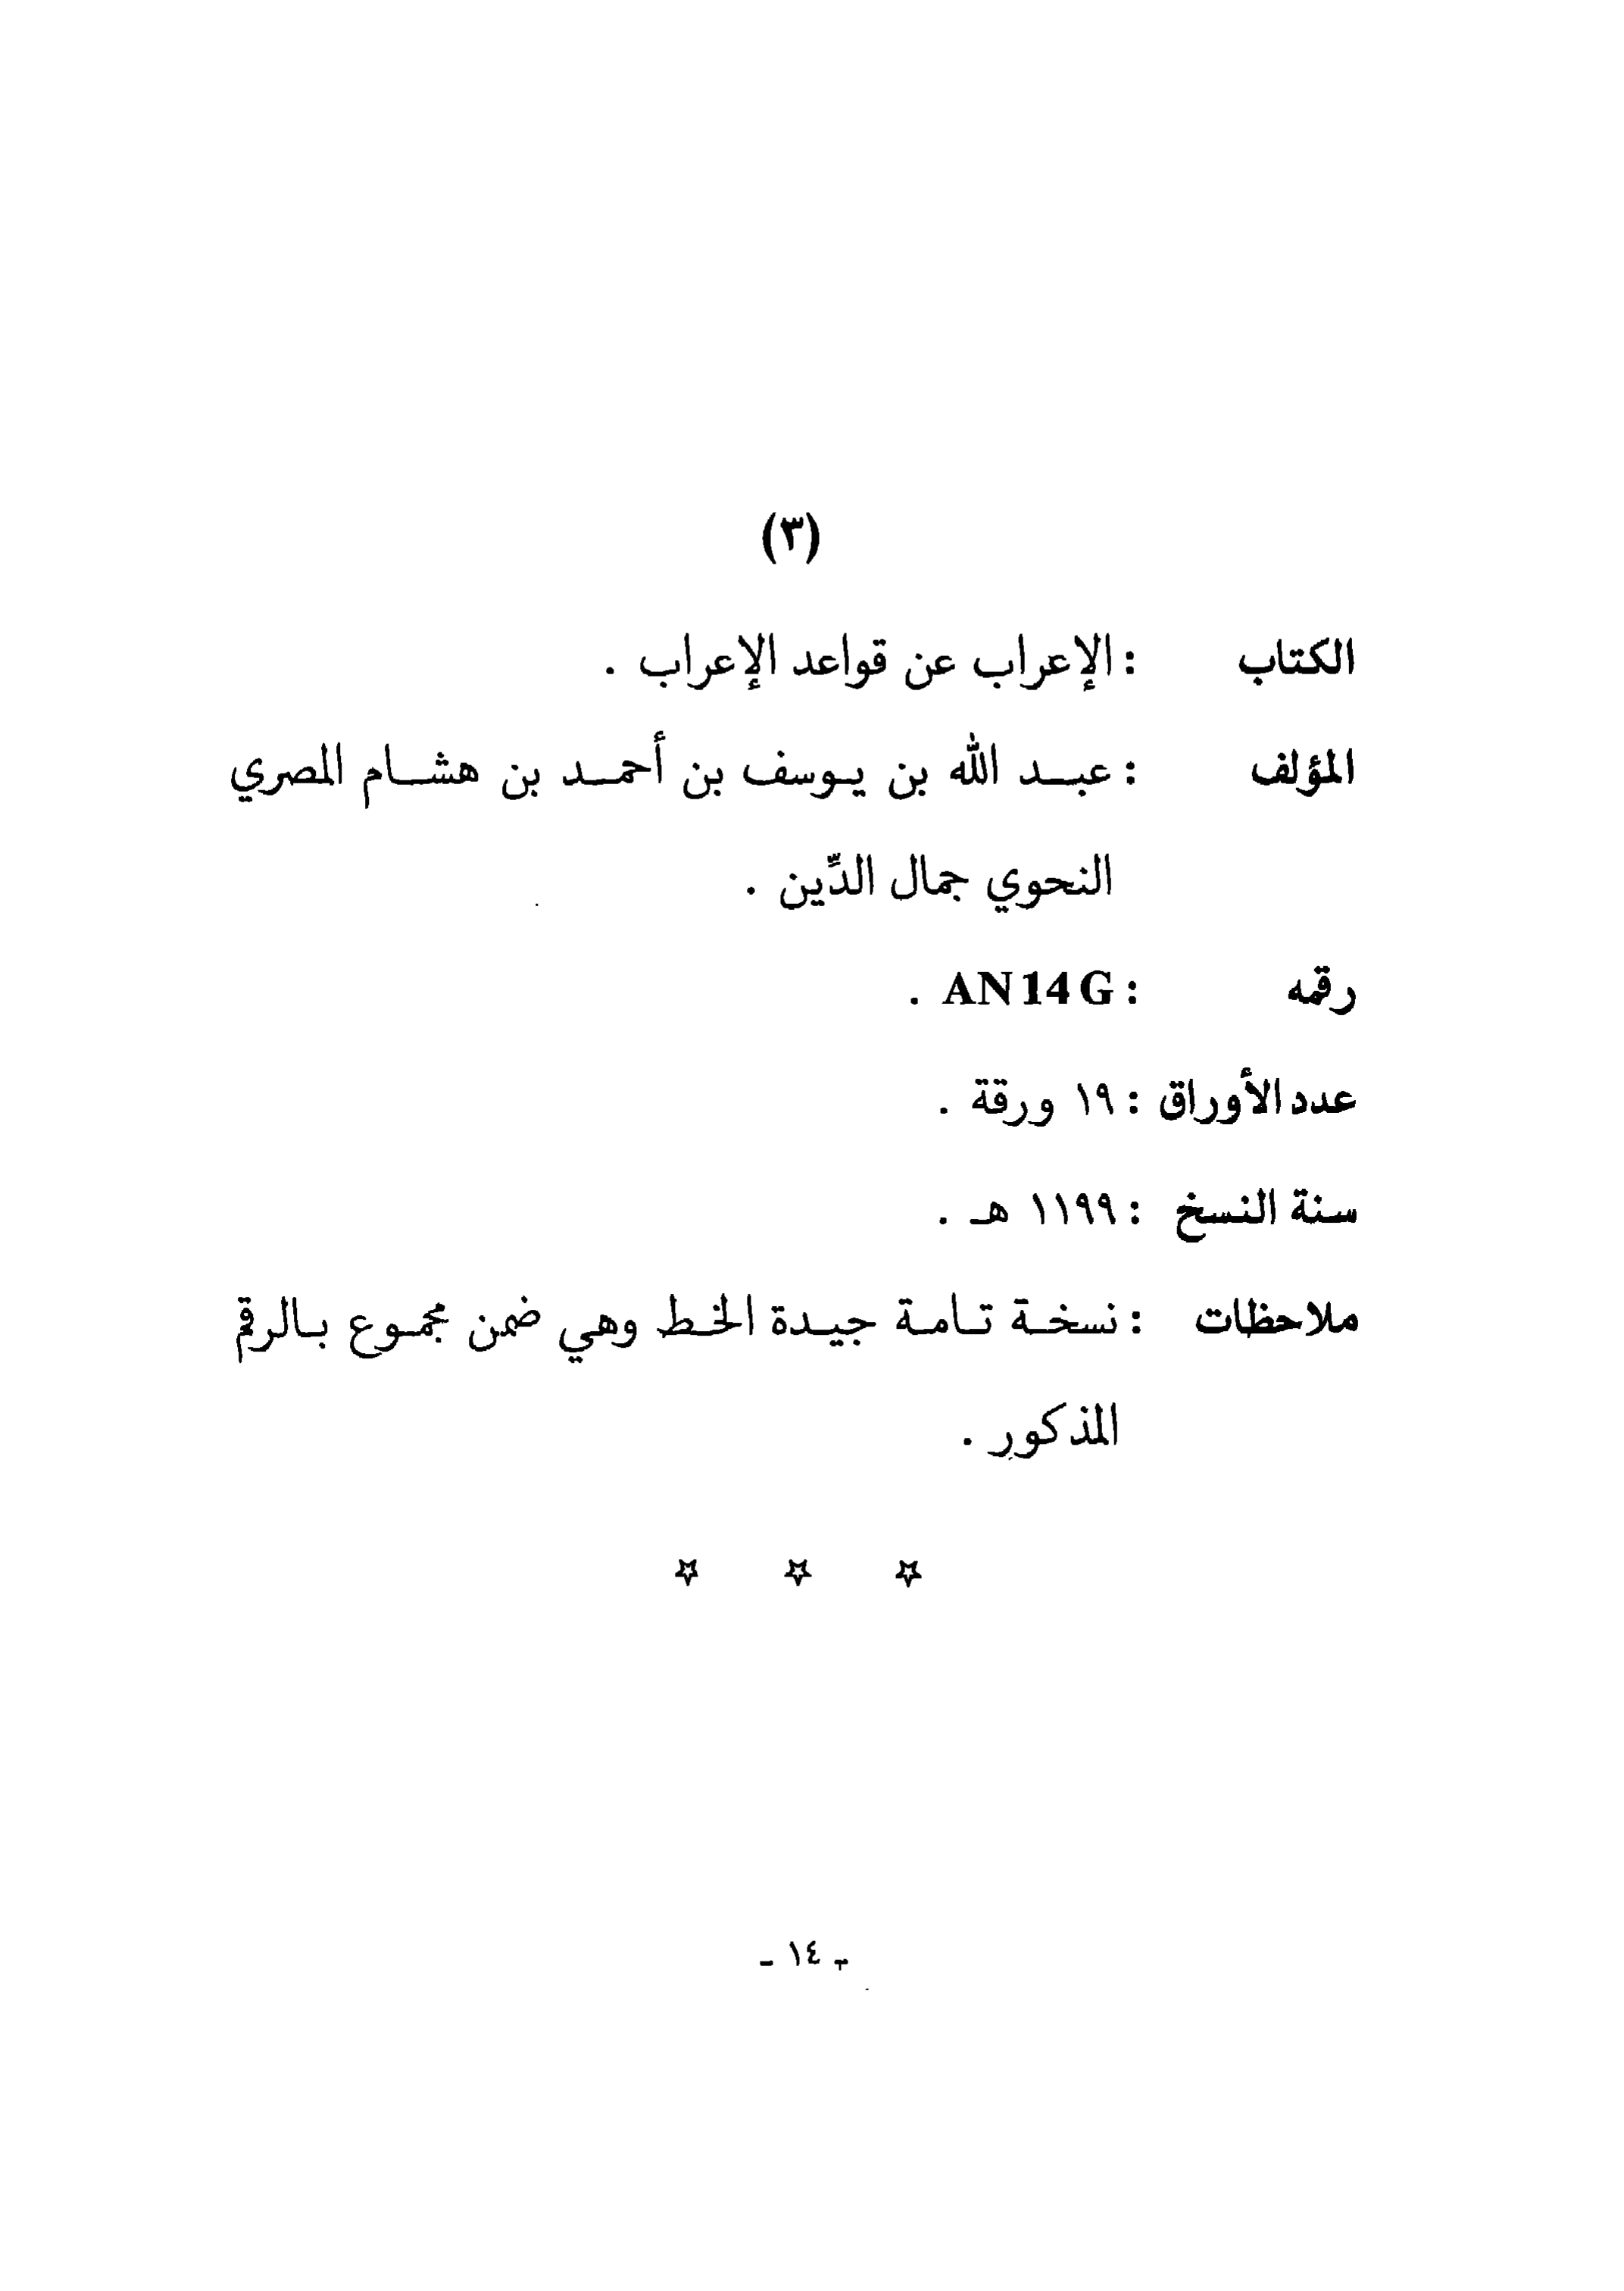 (٣)
الكتاب : الإعراب عن قواعد الإعراب .
المؤلف : عبد الله بن يوسف بن أحمد بن هشام المصري
النحوي جمال الدِّين .
رقمه : AN 14 G .
عدد الأوراق : ١٩ ورقة .
سنة النسخ : ١١٩٩ هـ .
ملاحظات : نسخة تامة جيدة الخط وهي ضمن مجموع بالرقم
المذكور .
☆ ☆ ☆
- ١٤ -